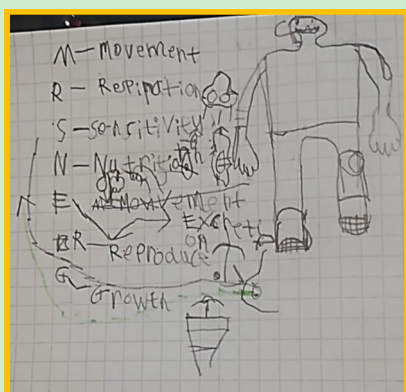 M-Movement
R-Respiration
S-Sensitivity
N-Nutrition
E Movement
Excreti
on
R-Reproduce
G-Growth